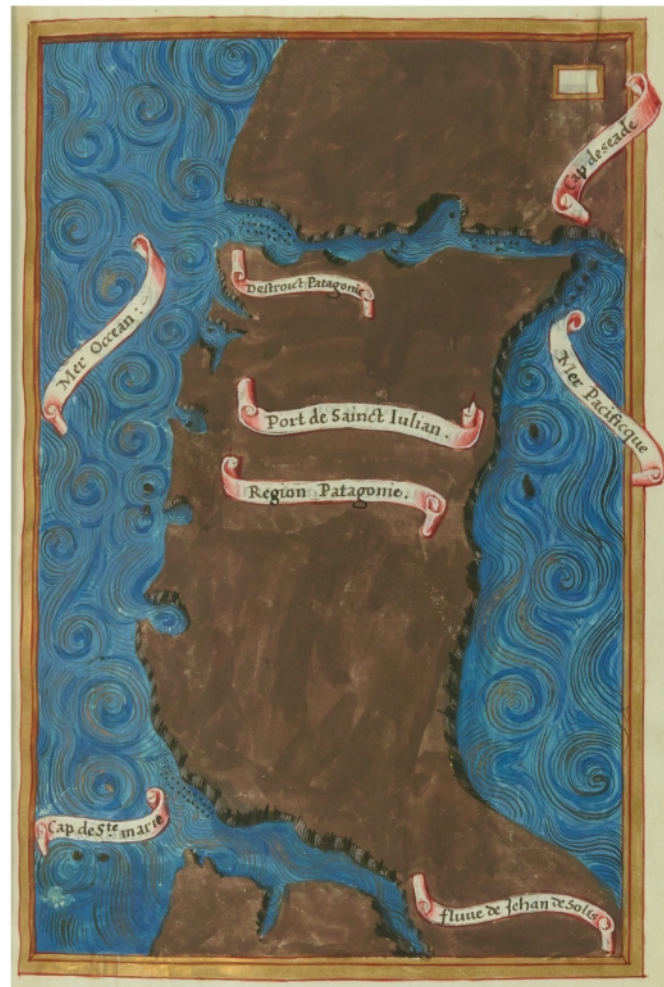 Cap deseade
Destroict Patagonie
Mer Ocean :
Mer Pacificque
Port de Sainct Iulian .
Region Patagonie.
Cap de Ste marie
fluue de Jehan de Solis